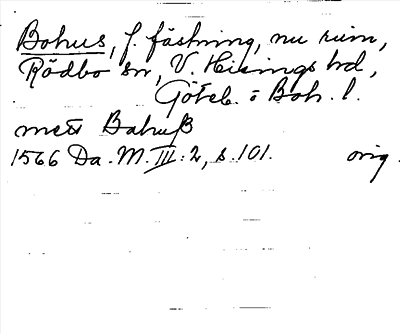 Bohus, f. fästning, nu ruin,
Rödbo sn, V. Hisings hd,
Göteb. o Boh. l.
mett Bahuß
1566 Da. M. III: 2, s. 101. orig.